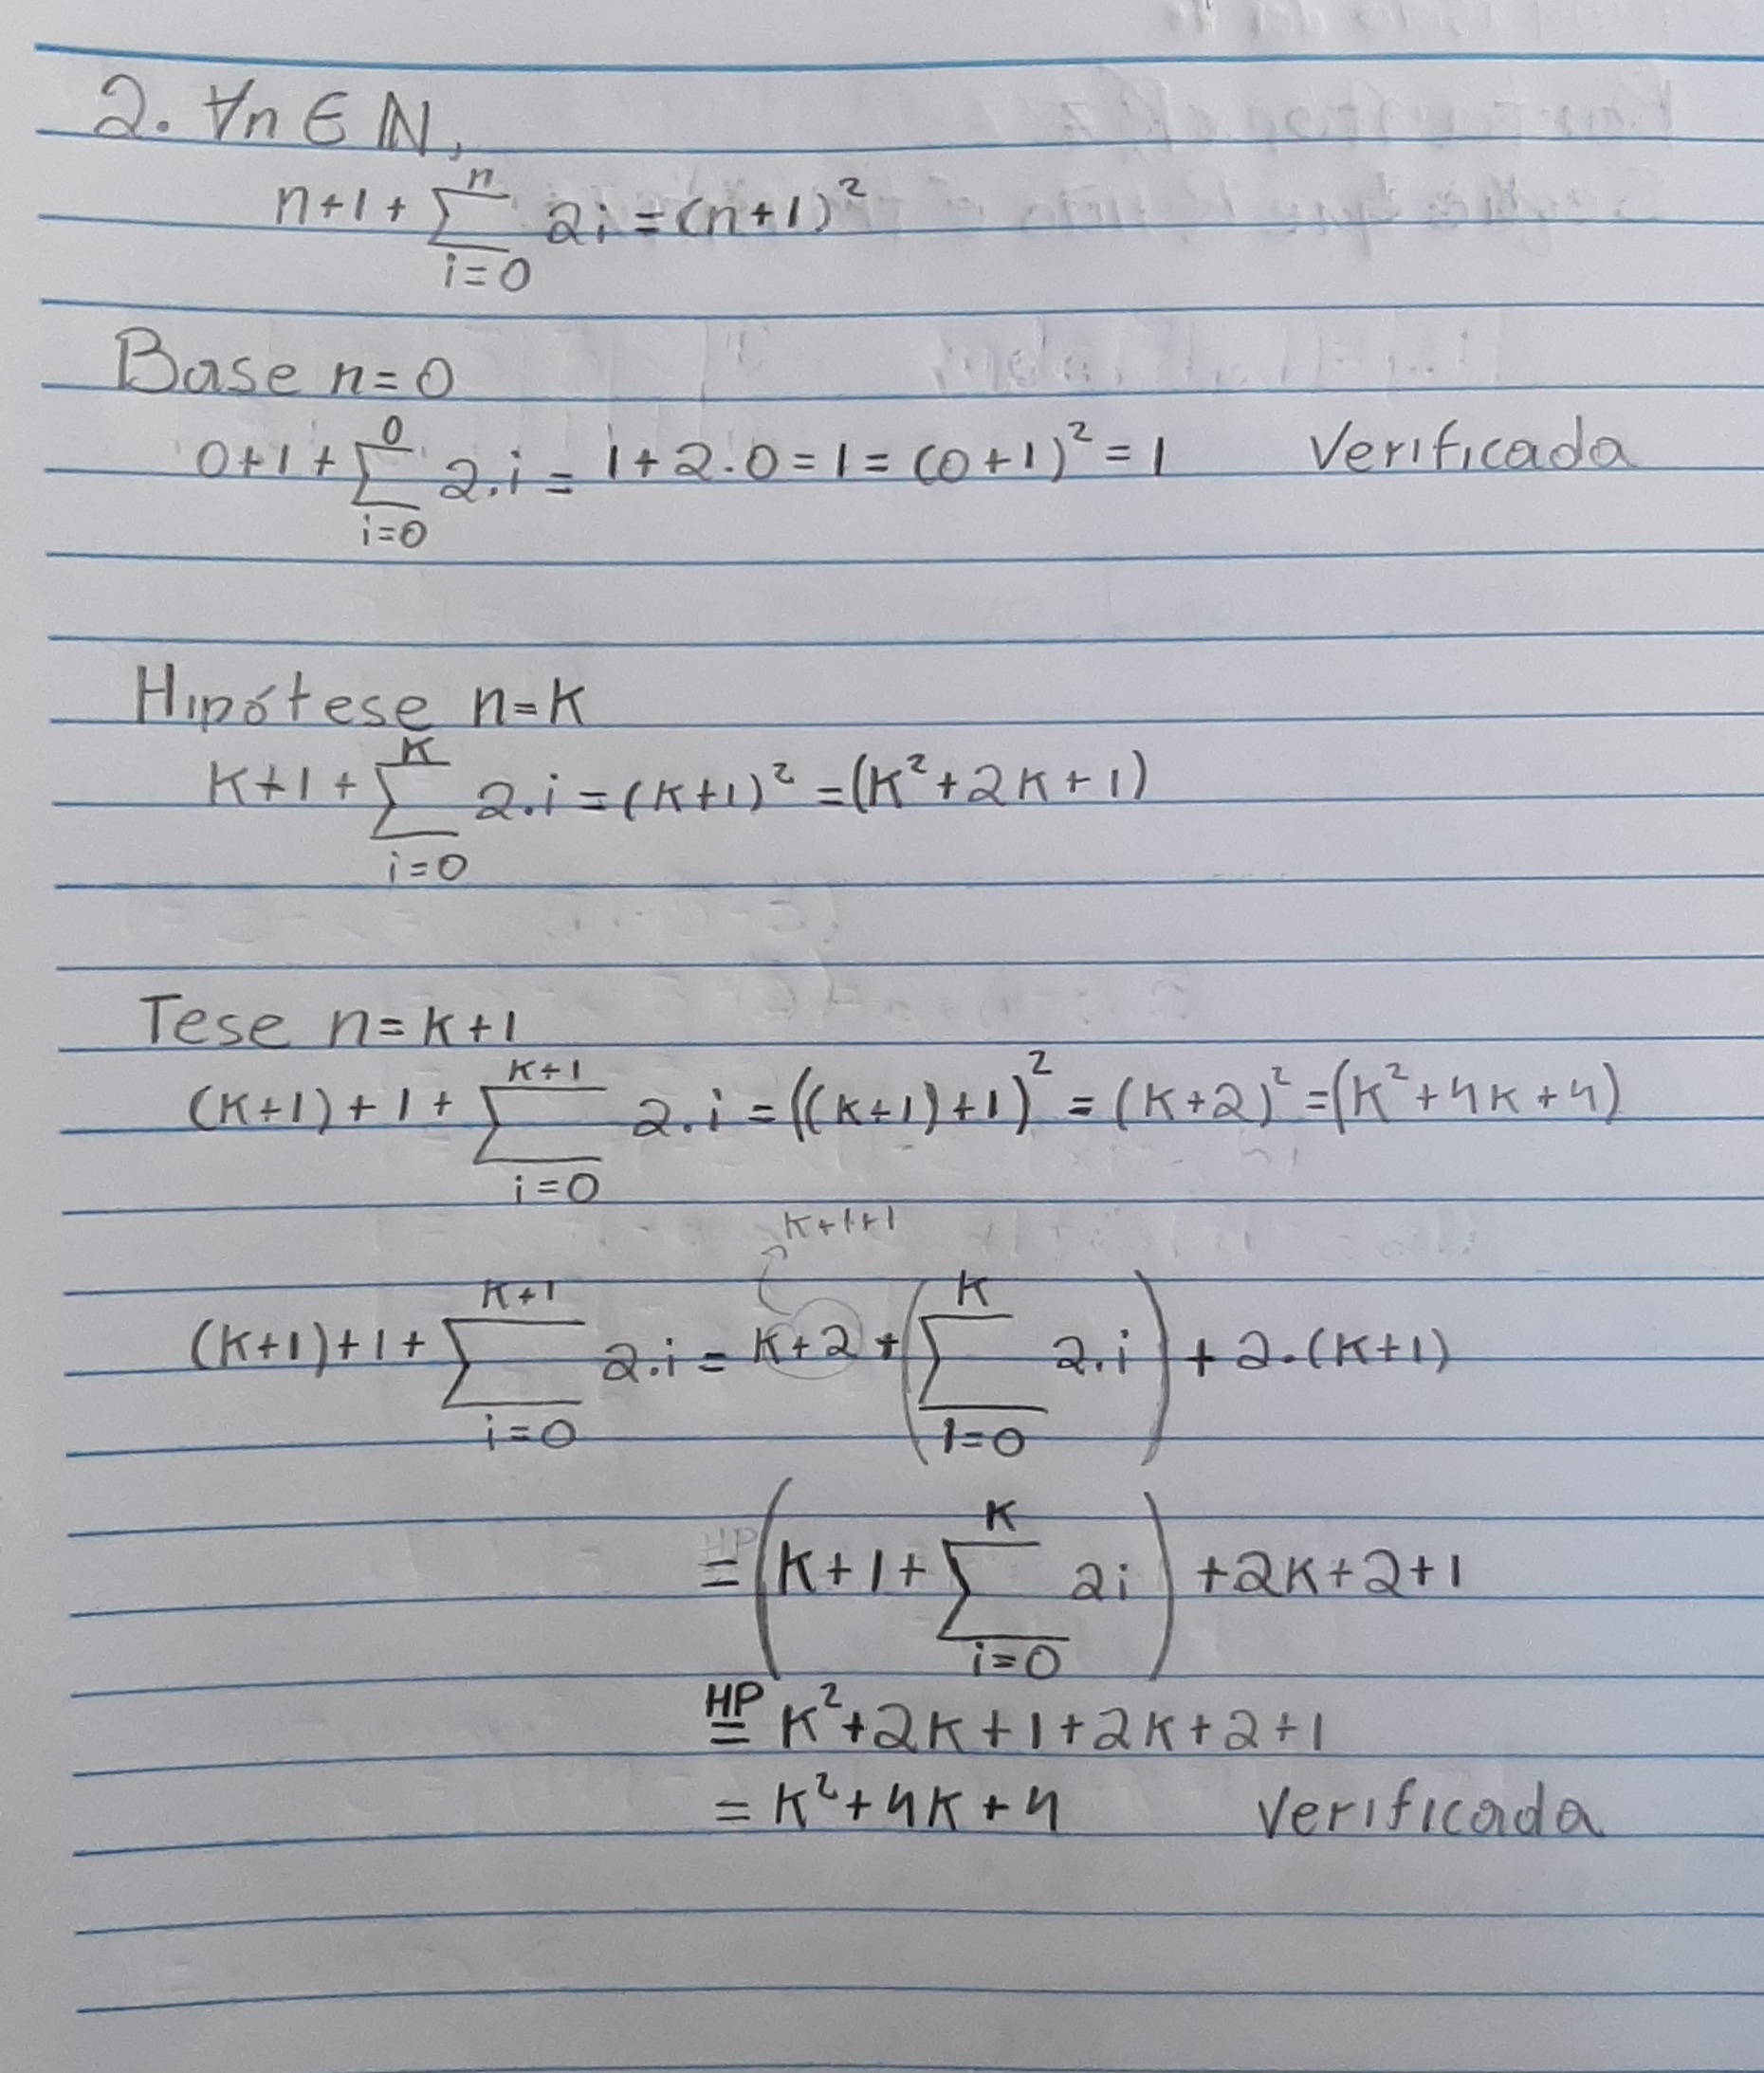 2. ∀n ∈ ℕ,
n+1+ ∑_{i=0}^{n} 2i = (n+1)²
Base n=0
0+1+ ∑_{i=0}^{0} 2.i = 1+2.0=1=(0+1)²=1 Verificada
Hipótese n=K
K+1+ ∑_{i=0}^{K} 2.i = (K+1)² = (K²+2K+1)
Tese n=K+1
(K+1)+1+ ∑_{i=0}^{K+1} 2.i = ((K+1)+1)² = (K+2)² = (K²+4K+4)
K+1+1
(K+1)+1+ ∑_{i=0}^{K+1} 2.i = K+2+ (∑_{i=0}^{K} 2.i) + 2.(K+1)
= (K+1+ ∑_{i=0}^{K} 2i) +2K+2+1
HP= K²+2K+1+2K+2+1
= K²+4K+4 Verificada